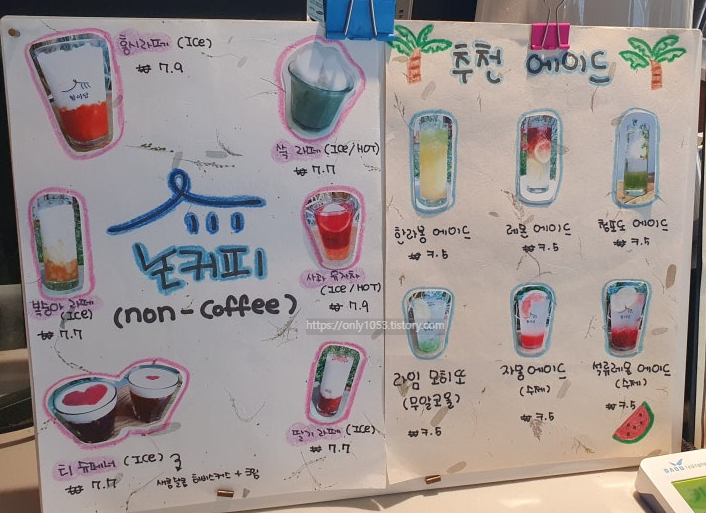 홍시라떼 (ICE)
₩ 7.9
쑥 라떼 (ICE/HOT)
₩ 7.7
논커피
(non-coffee)
복숭아 라떼
(ICE)
₩ 7.7
사과 유자차
(ICE/HOT)
₩ 7.9
티 슈페너 (ICE)
₩ 7.7
딸기 라떼 (ICE)
₩ 7.7
추천 에이드
한라봉 에이드
₩ 7.5
레몬 에이드
₩ 7.5
청포도 에이드
₩ 7.5
라임 모히또
(무알콜)
₩ 7.5
자몽 에이드
(수제)
₩ 7.5
석류레몬 에이드
(수제)
₩ 7.5
https://only1053.tistory.com